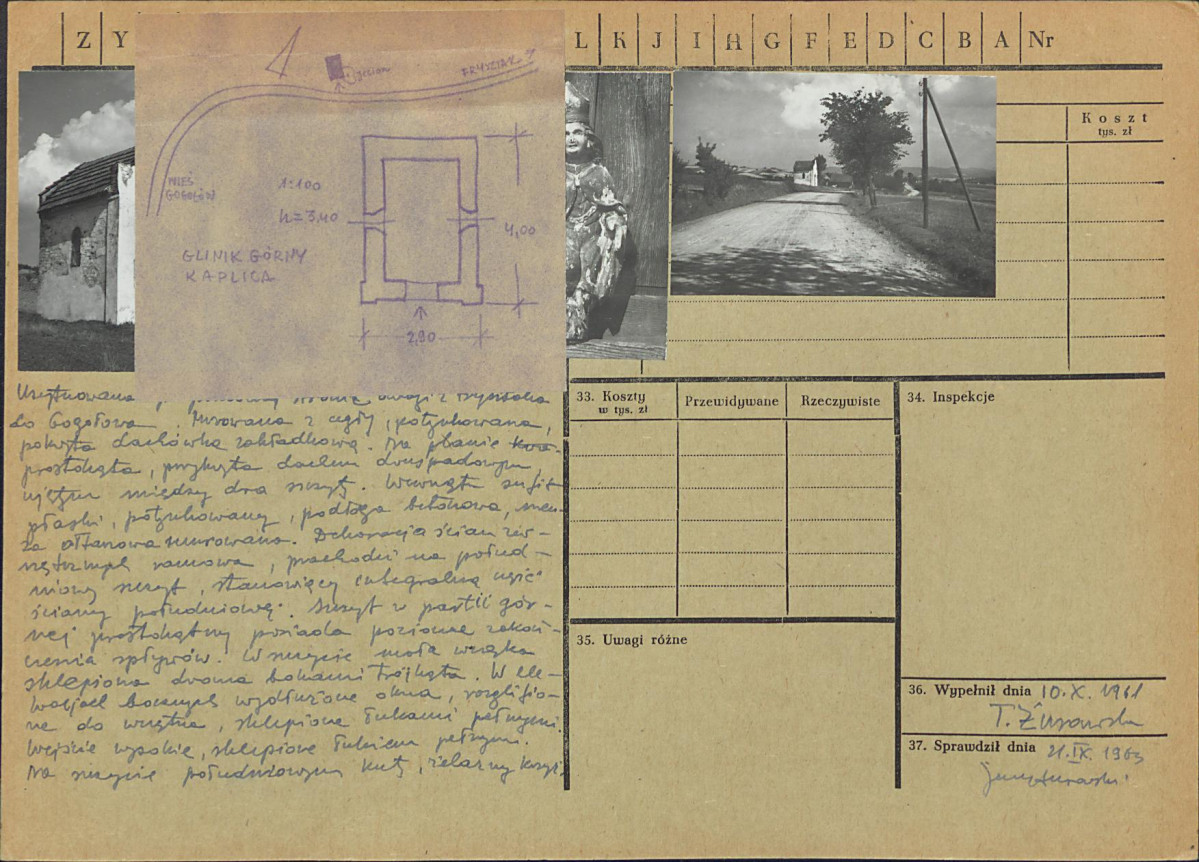 Z Y L K J I H G F E D C B A Nr
jesion
FRYSZTAK
WIEŚ
GOGOŁÓW
1:100
h=3,40
GLINIK GÓRNY
KAPLICA
4,00
2,90
Koszt
tys. zł
Usytuowana po
do Gogołowa. Murowana z cegły, potynkowana,
pokryta dachówką zakładkową. Na planie
prostokąta, przykryta dachem dwuspadowym,
ujętym między dwa szczyty. Wewnątrz sufit
płaski, potynkowany, podłoga betonowa, men-
za ołtarzowa murowana. Dekoracja ścian zew-
nętrznych ramowa, przechodzi na połud-
niowy szczyt, stanowiący integralną część
ściany południowej. Szczyt w partii gór-
nej prostokątny posiada poziome zakoń-
czenia spływów. W szczycie mała wnęka
sklepiona dwoma bokami trójkąta. W ele-
wacjach bocznych wydłużone okna, rozglifio-
ne do wnętrza, sklepione łukami pełnymi.
Wejście wysokie, sklepione łukiem pełnym.
Na szczycie południowym kuty, żelazny krzyż.
33. Koszty
w tys. zł
Przewidywane
Rzeczywiste
34. Inspekcje
35. Uwagi różne
36. Wypełnił dnia 10.X.1961
T. Żurowska
37. Sprawdził dnia 21.IX.1963